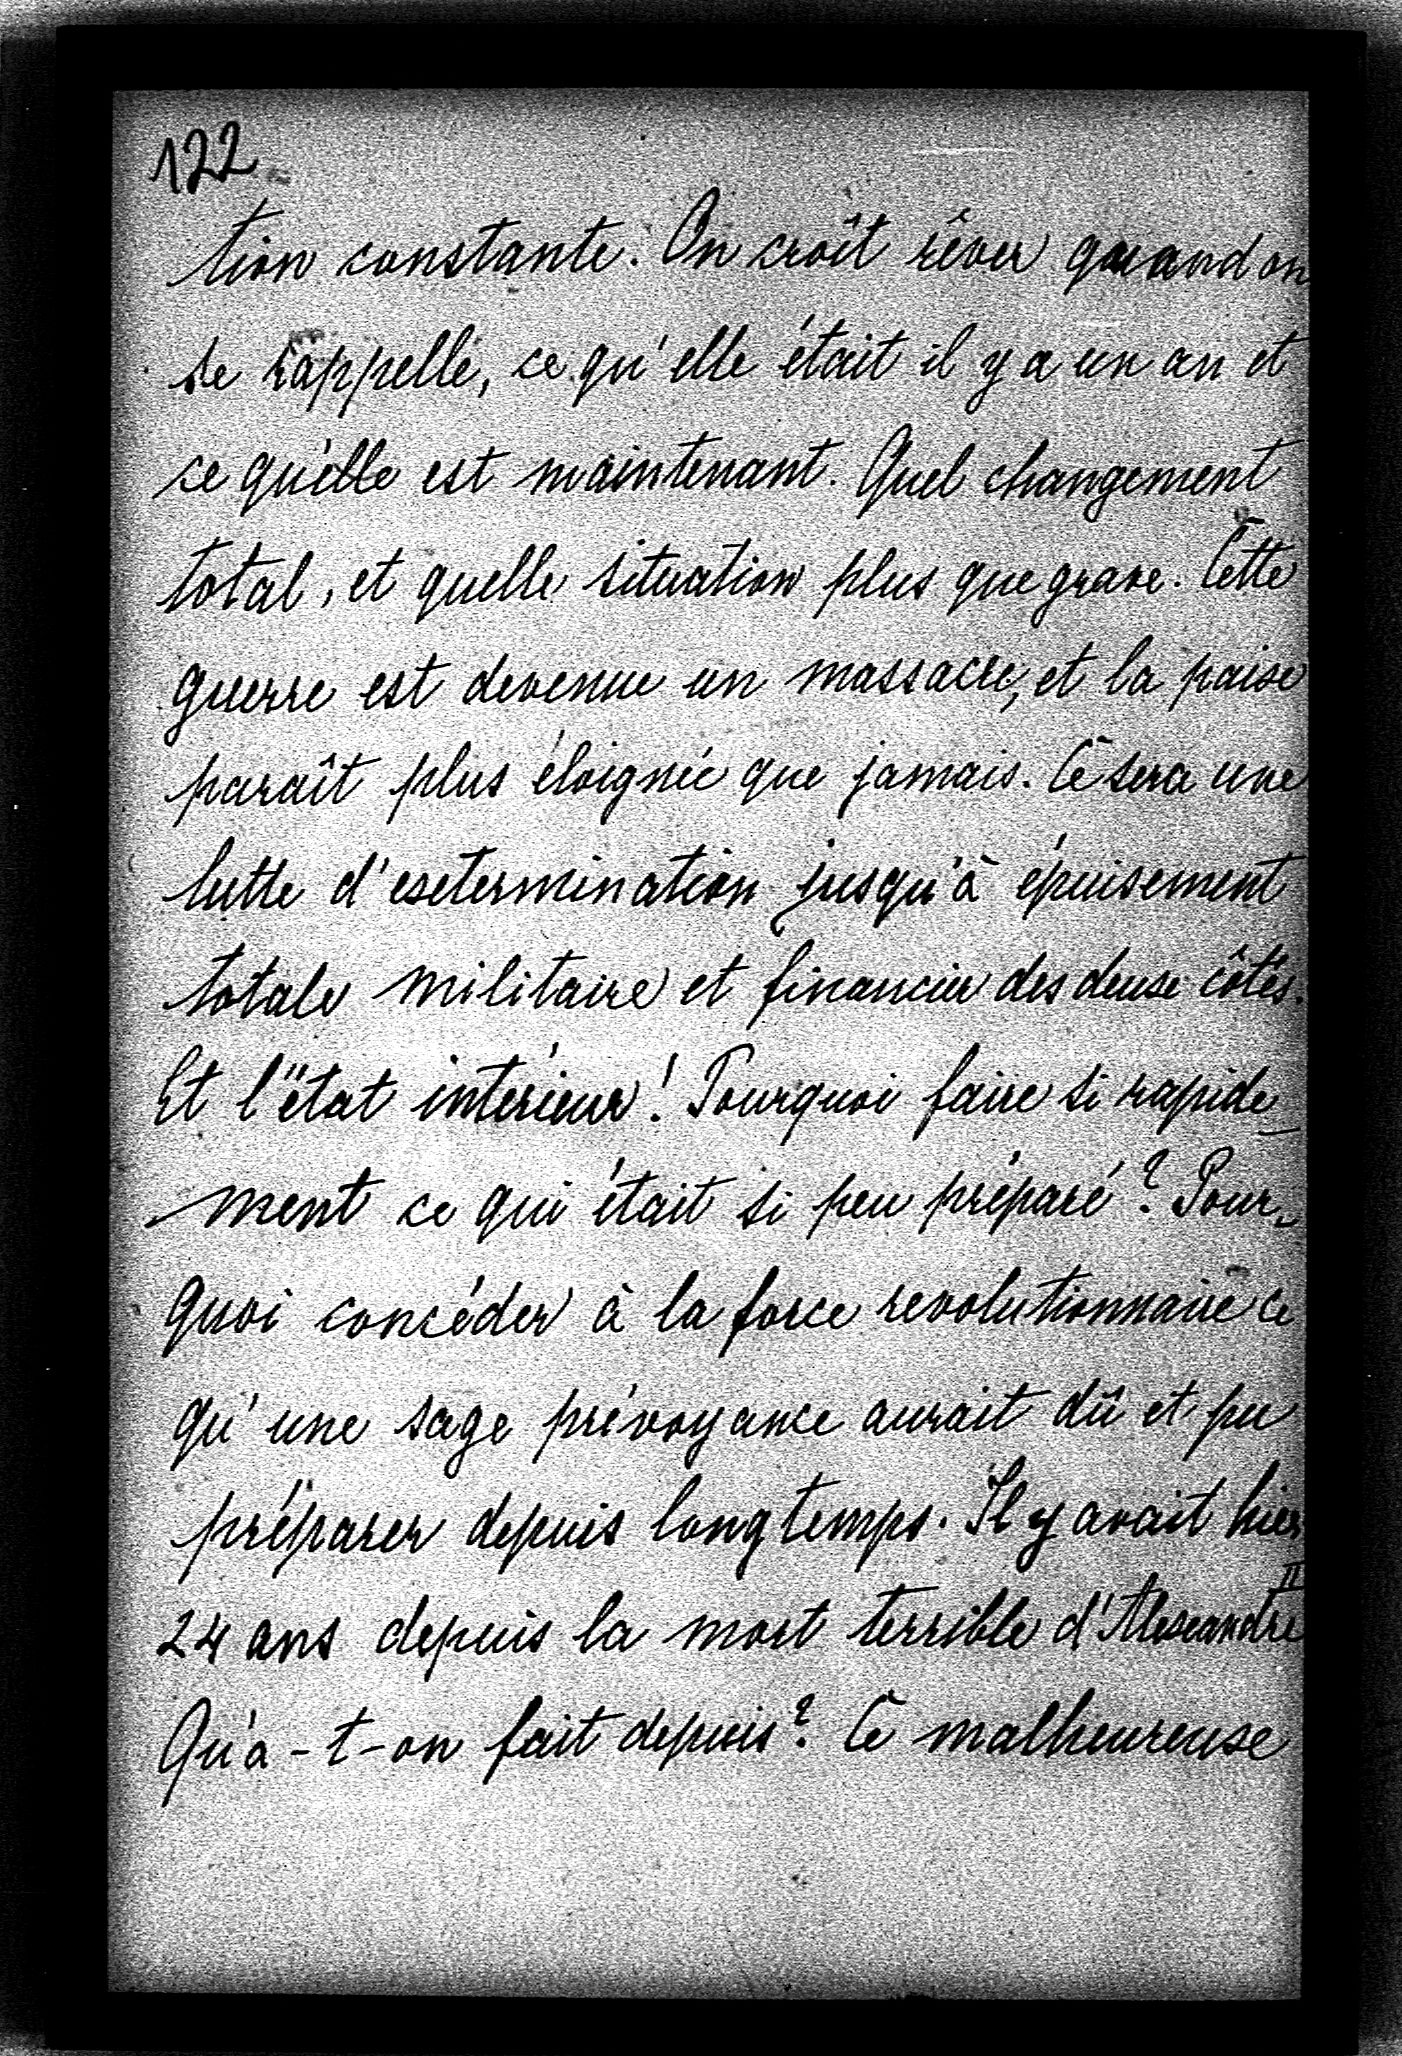 122
tion constante. On croît rêver quand on
se rappelle, ce qu'elle était il y a un an et
ce qu'elle est maintenant. Quel changement
total, et quelle situation plus que grave. Cette
guerre est devenue un massacre, et la paix
paraît plus éloignée que jamais. Ce sera une
lutte d'extermination jusqu'à épuisement
totale militaire et financier des deux côtés.
Et l'état intérieur! Pourquoi faire si rapide-
ment ce qui était si peu préparé? Pour-
quoi concéder à la force revolutionnaire ce
qu'une sage prévoyance aurait dû et pu
préparer depuis longtemps. Il y avait hier
24 ans depuis la mort terrible d'Alexandre II
Qu'a-t-on fait depuis? Ce malheureuse